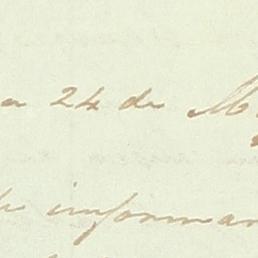 a 24 de M
informan